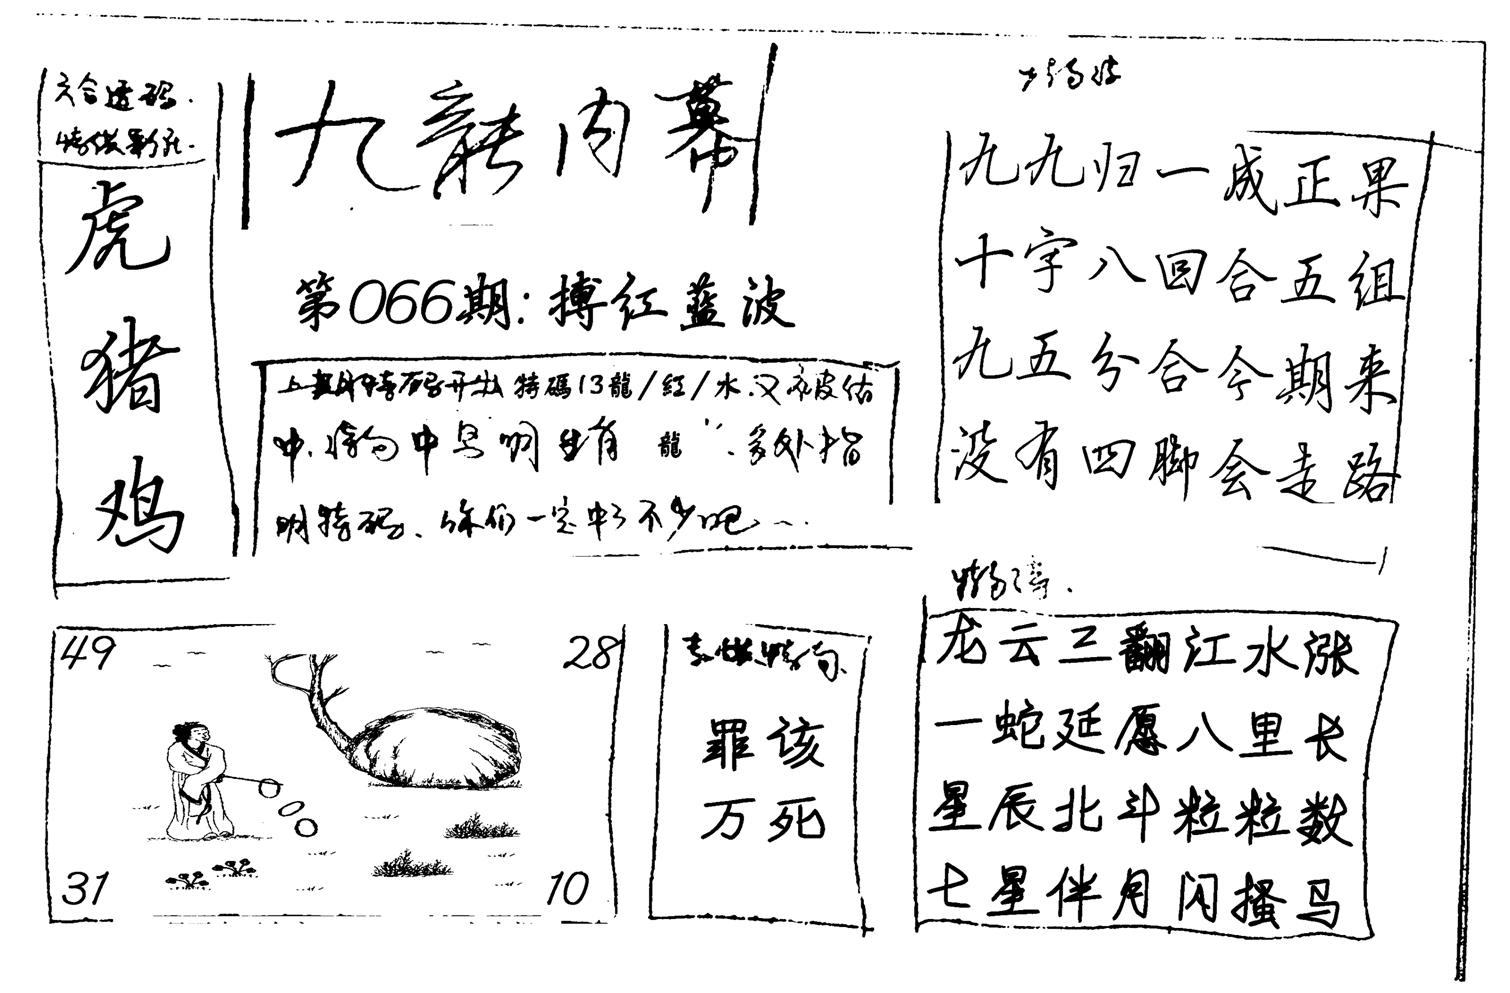 六合透码.
虎
猪
鸡
九龍内幕
第066期:搏红蓝波
特碼13龍/紅/水.又被估
中.中 生肖 龍 多处指
明特码、你们一定中了不少吧
九九归一成正果
十字八回合五组
九五分合今期来
没有四脚会走路
49
28
31
10
罪该
万死
龙云三翻江水涨
一蛇延愿八里长
星辰北斗粒粒数
七星伴月闪搔马